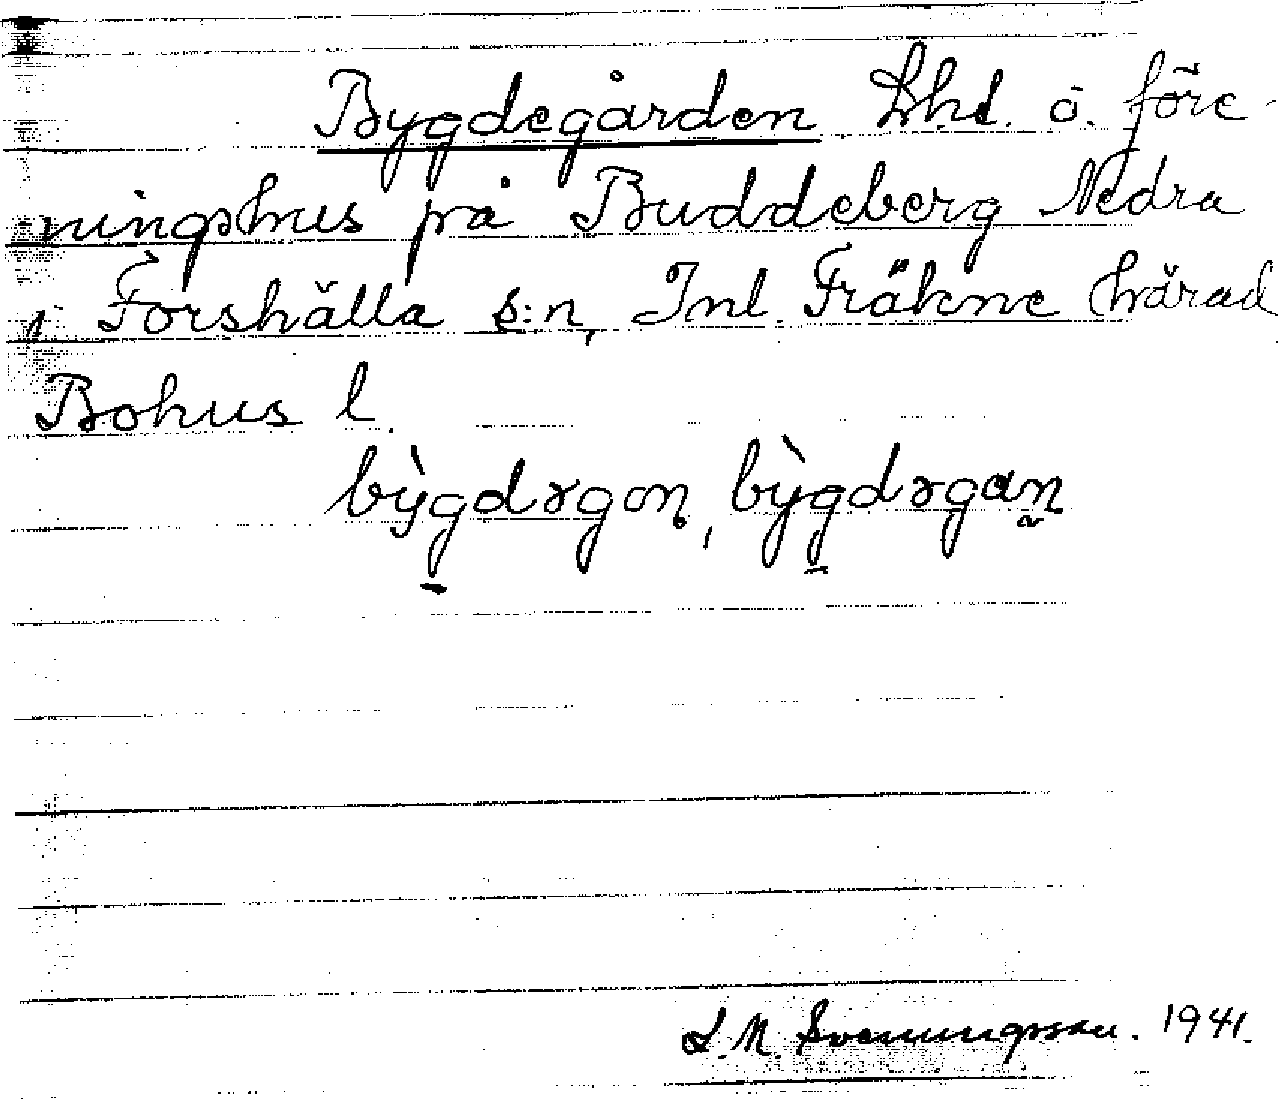 Bygdegården Lhl. o. före-
ningshus på Buddeberg Nedra
i Forshälla s:n, Inl. Fräkne härad
Bohus l.
bỳgdəgon, bỳgdəgan
L.M. Svenungsson. 1941.